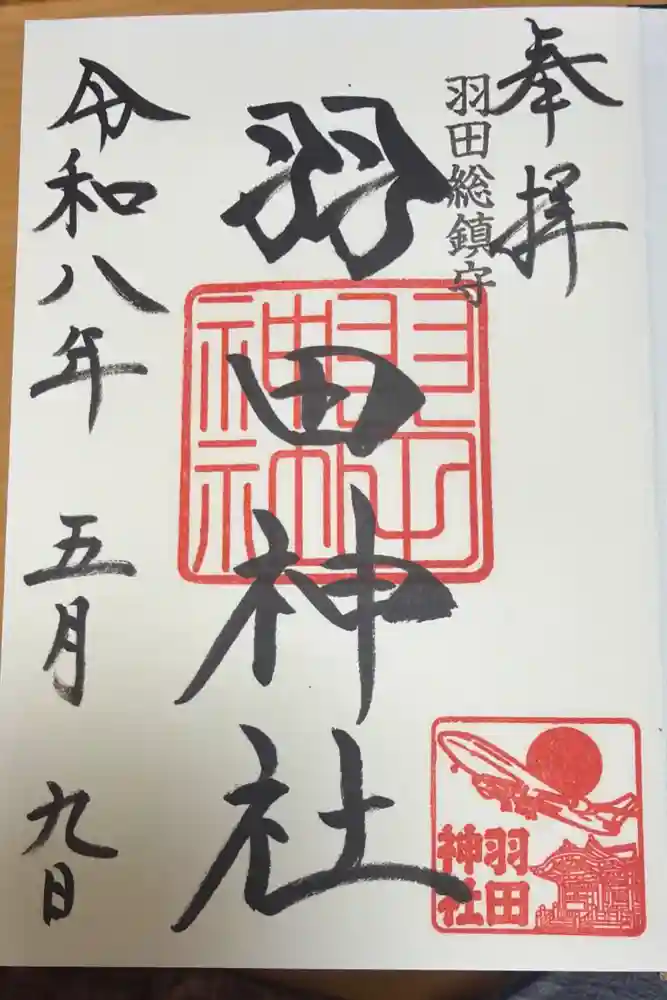 奉拝
羽田総鎮守
羽田神社
羽田神社
令和八年 五月 九日
羽田
神社